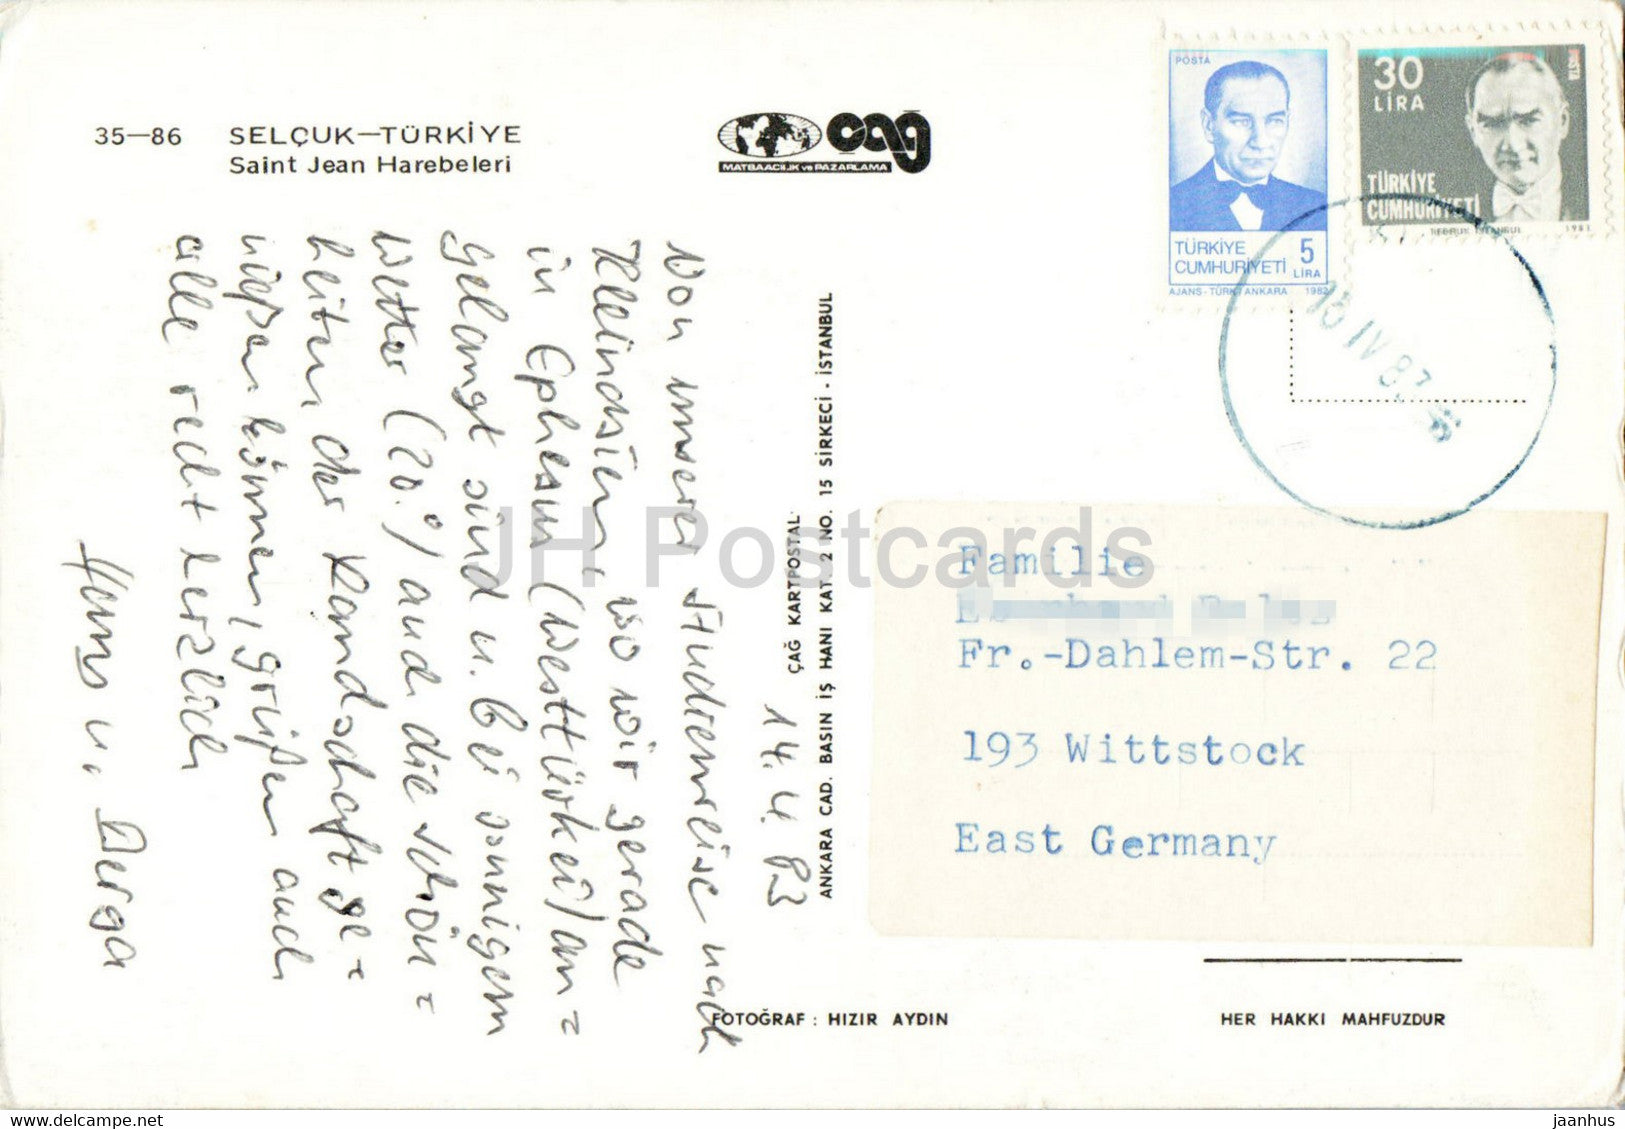 35—86 SELÇUK—TÜRKİYE
Saint Jean Harebeleri
MATBAACILIK ve PAZARLAMA
çağ
POSTA
TÜRKİYE
CUMHURİYETİ
5
LİRA
AJANS-TÜRK/ANKARA 1982
30
LİRA
POSTA
TÜRKİYE
CUMHURİYETİ
TEBRUK İSTANBUL 1981
14.4.83
Von unserer Studienreise nach
Kleinasien, wo wir gerade
in Ephesus (Westtürkei) an=
gelangt sind u. bei sonnigem
Wetter (20.°) auch die Schön=
heiten der Landschaft ge=
nießen können, grüßen auch
alle recht herzlich
Hans u. Derga
ÇAĞ KARTPOSTAL
ANKARA CAD. BASIN İŞ HANI KAT. 2 NO. 15 SİRKECİ - İSTANBUL
Familie
Fr.-Dahlem-Str. 22
193 Wittstock
East Germany
FOTOĞRAF : HIZIR AYDIN
HER HAKKI MAHFUZDUR
JH Postcards
www.delcampe.net
jaanhus